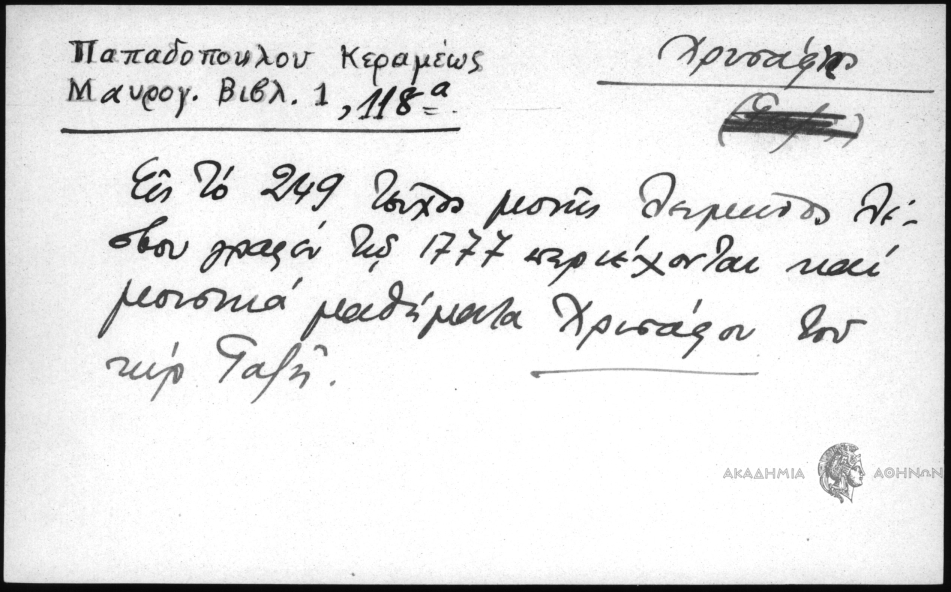 Παπαδοπουλου Κεραμέως
Μαυρογ. Βιβλ. 1, 118α
Χρυσάφης
Εἰς τό 249 τεῦχος μονῆς Λειμῶνος Λέ-
σβου γραφέν τῷ 1777 περιέχονται καί
μουσικά μαθήματα Χρυσάφου τοῦ
κύρ
ΑΚΑΔΗΜΙΑ ΑΘΗΝΩΝ